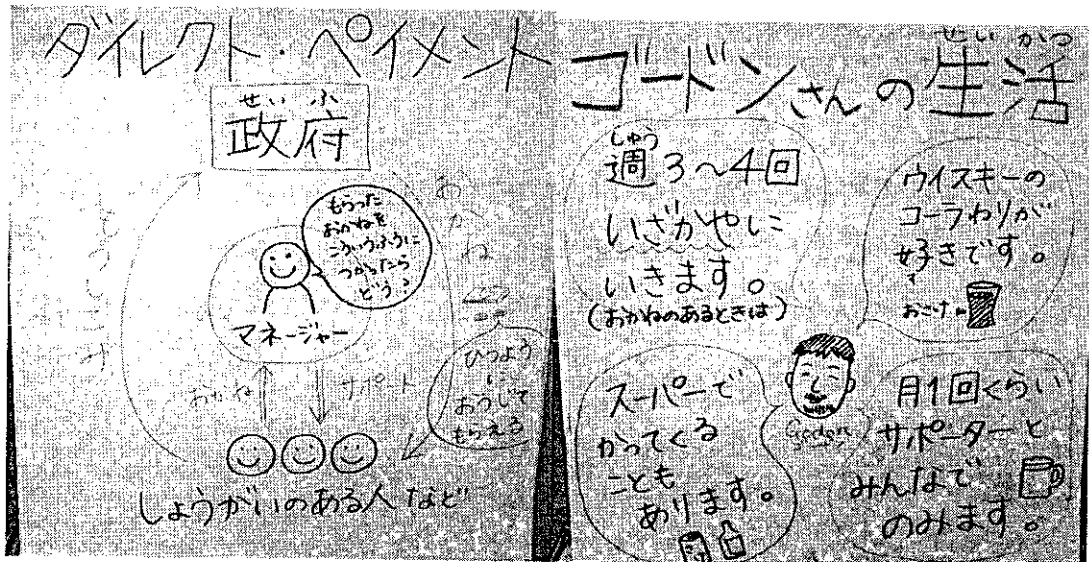 ダイレクト・ペイメント
せいふ
政府
もうしこみ
おかね
もらった
おかねを
こういうふうに
つかったら
どう?
マネージャー
おかね
サポート
ひつよう
に
おうじて
もらえる
しょうがいのある人など
ゴードンさんの生活
せいかつ
しゅう
週3〜4回
いざかやに
いきます。
(おかねのあるときは)
ウイスキーの
コーラわりが
好きです。
おさけ
スーパーで
かってくる
ことも
あります。
Godon
月1回くらい
サポーターと
みんなで
のみます。